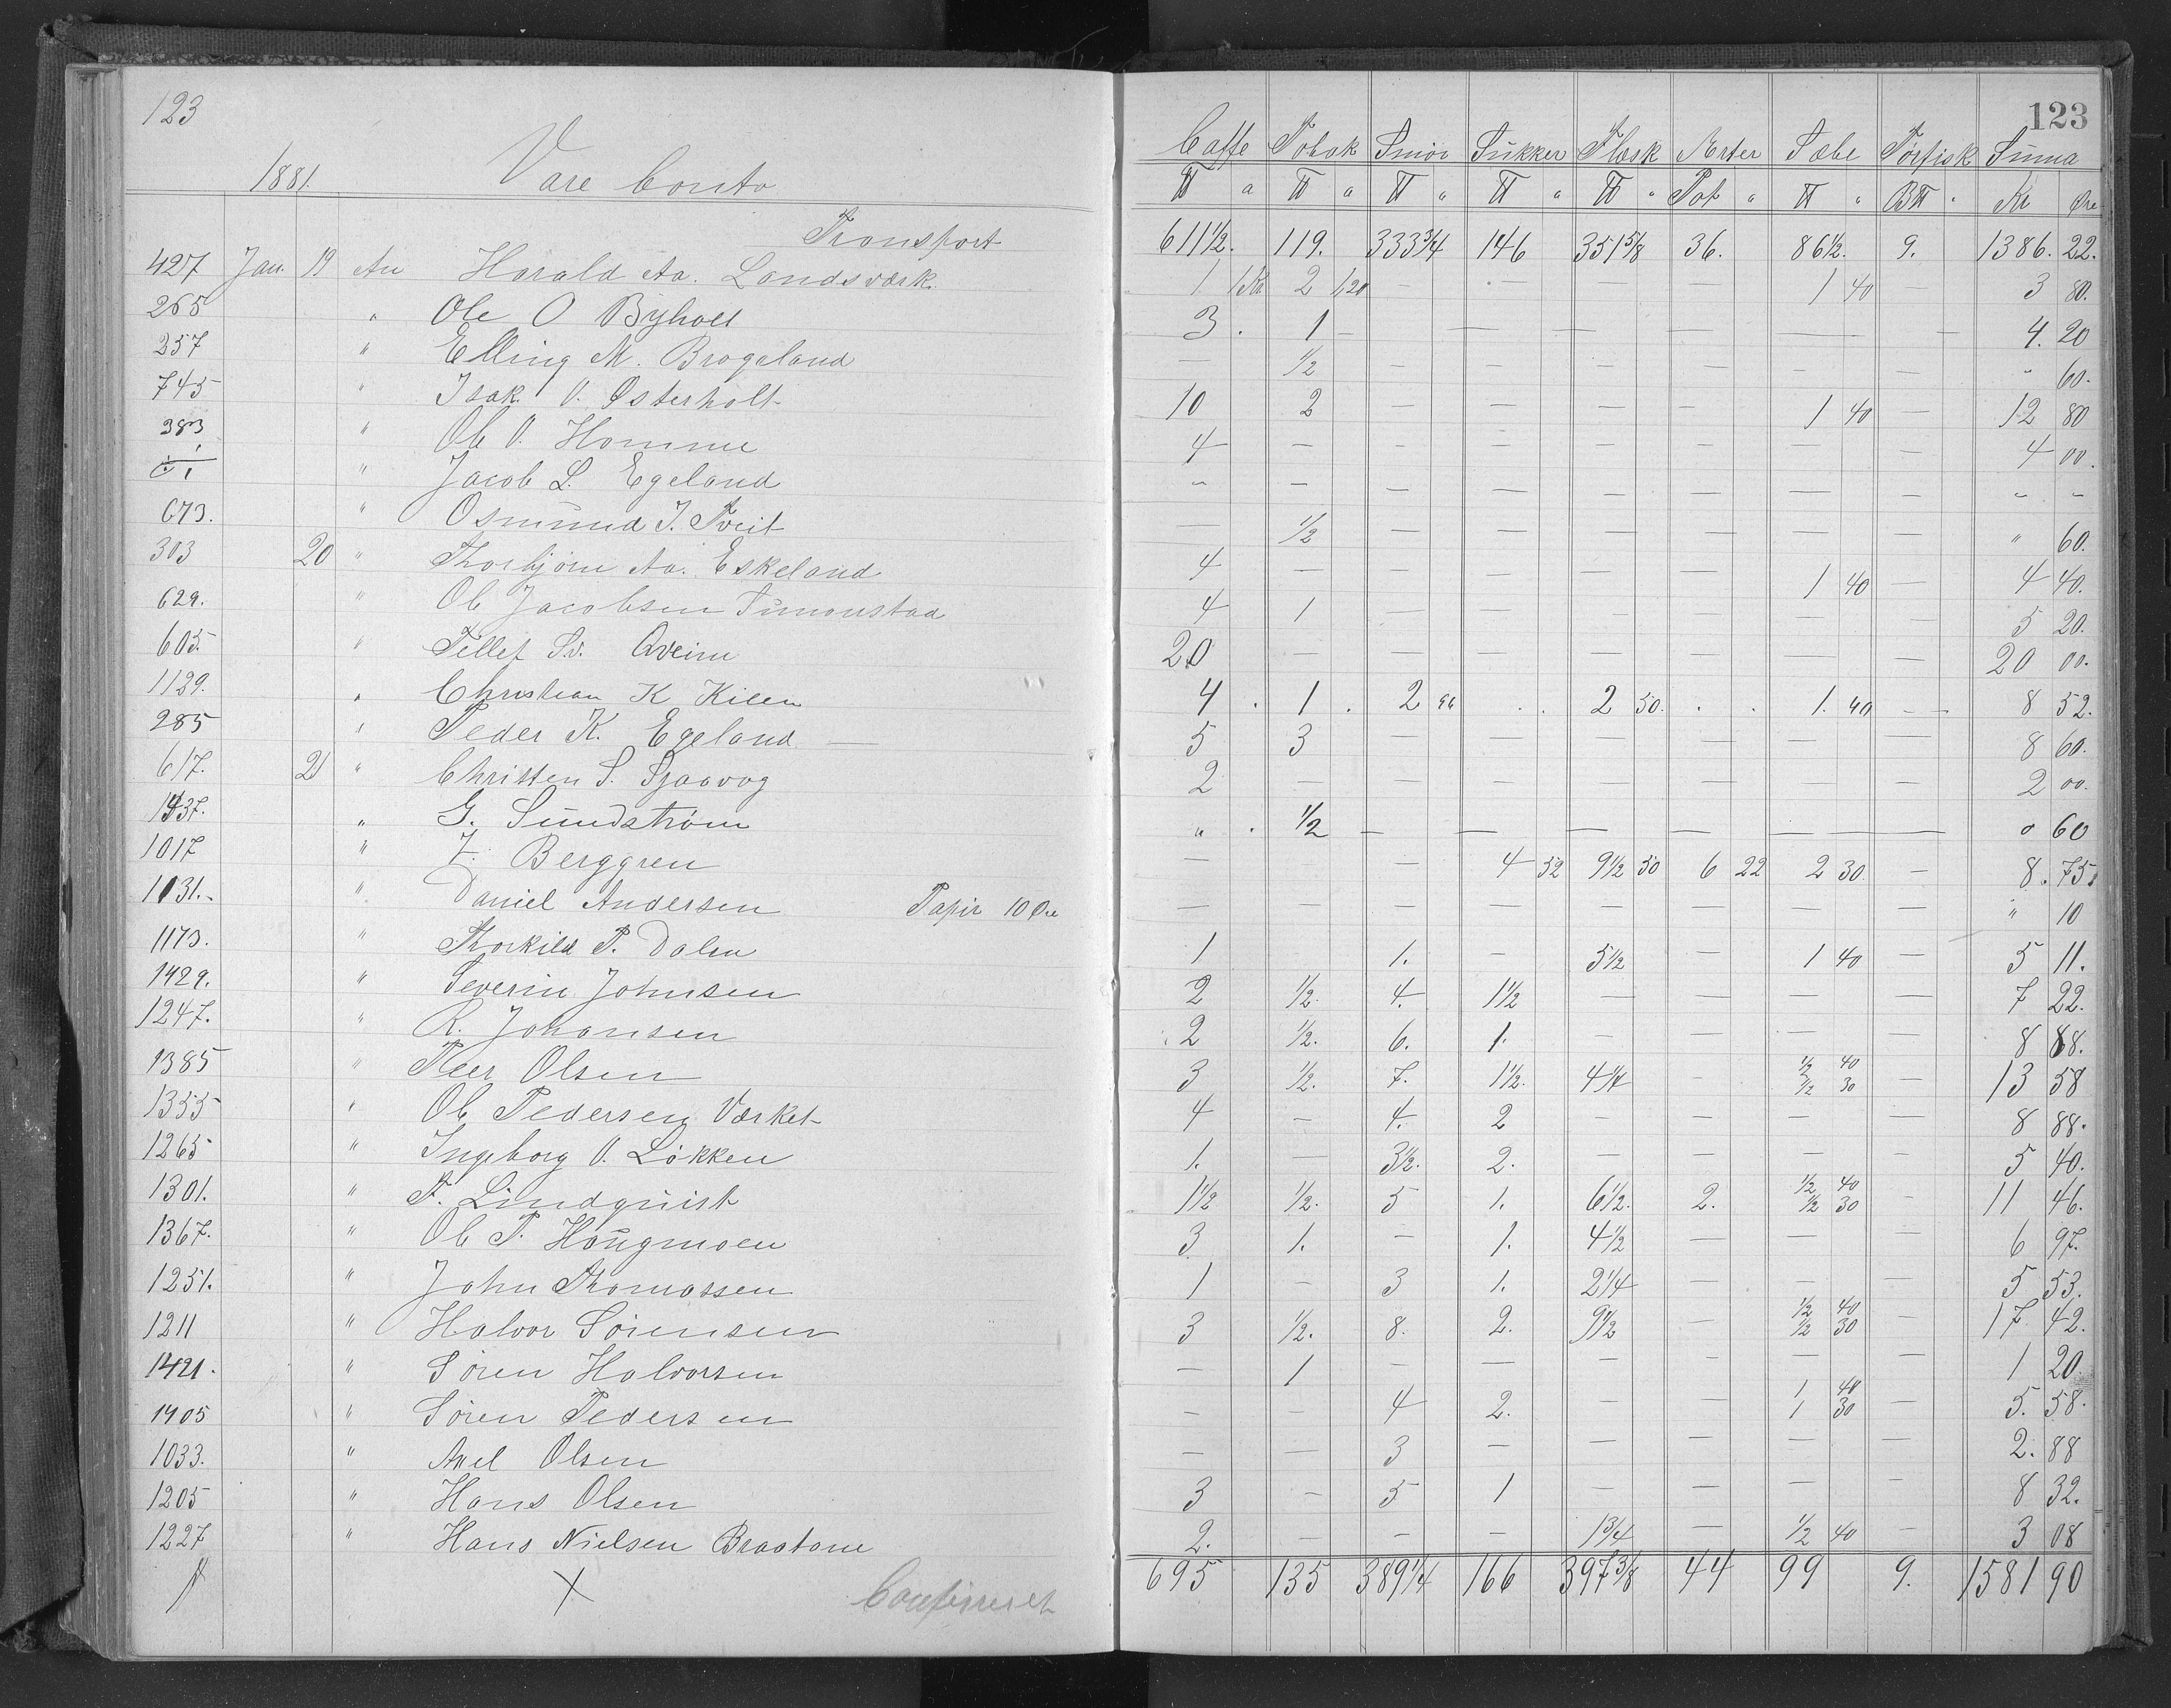 123
1881. Vare Conto
Transport
427 Jan. 19 An Harald Aa. Landsværk.
265 " Ole O Byholt
257 " Elling M. Brogeland
745 " Isak O. Østerholt
383 " Ole O. Homme
" Jacob L. Egeland
673. " Osmund J. Tveit
303 20 " Thorbjørn Aa. Eskeland
629. " Ole Jacobsen Simonstad
605. " Tellef Sv. Qveim
1129. " Christian K Kilen
285 " Peder K. Egeland —
617. 21 " Christen S. Sjaavog
1437. " G. Sundstrøm
1017 " F. Berggren
1131. " Daniel Andersen Papir 10 Øre
1173. " Thorkild P. Dalen
1429. " Severin Johnsen
1247. " R. Johansen
1385 " Peer Olsen
1355 " Ole Pedersen Værket
1265 " Ingeborg O. Løkken
1301. " F. Lindquist
1367. " Ole P. Haugmoen
1251. " John Thomassen
1211 " Halvor Sörensen
1421. " Sören Halvorsen
1405 " Sören Pedersen
1033. " Axel Olsen
1205 " Hans Olsen
1227 " Hans Nielsen Braatane
X Confereret
123
Caffe Tobak Smör Sukker Flæsk Erter Sæbe Tørfisk Summa
℔ a ℔ a ℔ " ℔ " ℔ " Pot " ℔ " B℔ " Kr Øre
611½. 119. 333¾ 146 351⅝ 36. 86½. 9. 1386. 22.
1 1Kr 2 1,20 — — — — 1 40 — 3 80.
3. 1 — — — — — — 4. 20
— ½ — — — — — — " 60.
10 2 — — — — 1 40 — 12 80
4 — — — — — — — 4 00.
" — — — — — — — " "
— ½ — — — — — — " 60.
4 — — — — — 1 40 — 4 40.
4 1 — — — — — — 5 20.
20 — — — — — — — 20 00.
4 . 1 . 2 96 . . 2 50. . . 1. 40 - - 8 52.
5 3 — — — — — — 8 60.
2 — — — — — — — 2 00.
" . ½ — — — — — — 0 60
— — 4 52 9½ 50 6 22 2 30. — 8. 75.
— — — — — — — — " 10
1 - 1. — 5½ — 1 40 — 5 11.
2 ½. 4. 1½ — — — — 7 22.
2 ½. 6. 1. — — — — 8 88.
3 ½. 7. 1½. 4¼ - ½ 40 ½ 30 — 13 58
4 — 4. 2 — — — — 8 88.
1. — 3½. 2. — — — — 5 40.
1½ ½. 5 1. 6½. 2. ½ 40 ½ 30 - 11 46.
3 1. - 1. 4½ — — — 6 97.
1 - 3 1. 2¼ — — — 5 53.
3 ½. 8. 2. 9½ — ½ 40 ½ 30 — 17 42.
— 1 — — — - — — 1 20.
— — 4 2. — — 1 40 1 30 — 5. 58.
— — 3 — — — — — 2. 88
3 - 5 1 — — — - 8 32.
2. — — — 1¾ — ½ 40 — 3 08
695 135 389¼ 166 397⅜ 44 99 9. 1581 90